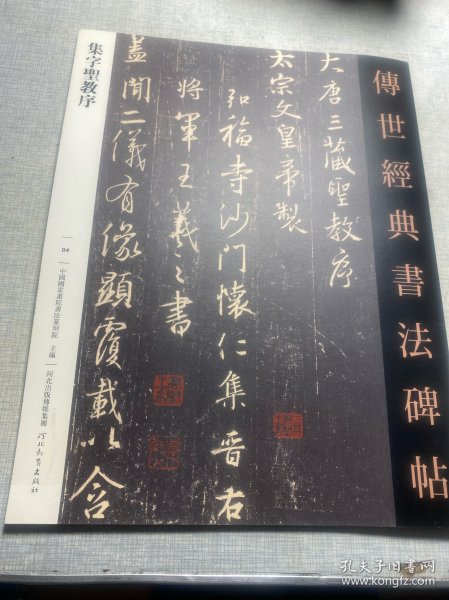 傳世經典書法碑帖
大唐三藏聖教序
太宗文皇帝製
弘福寺沙門懷仁集晉右
將軍王羲之書
盖聞二儀有像顯覆載以含
集字聖教序
04
中國國家畫院書法篆刻院 主編
河北出版傳媒集團
河北教育出版社
孔夫子旧书网
www.kongfz.com